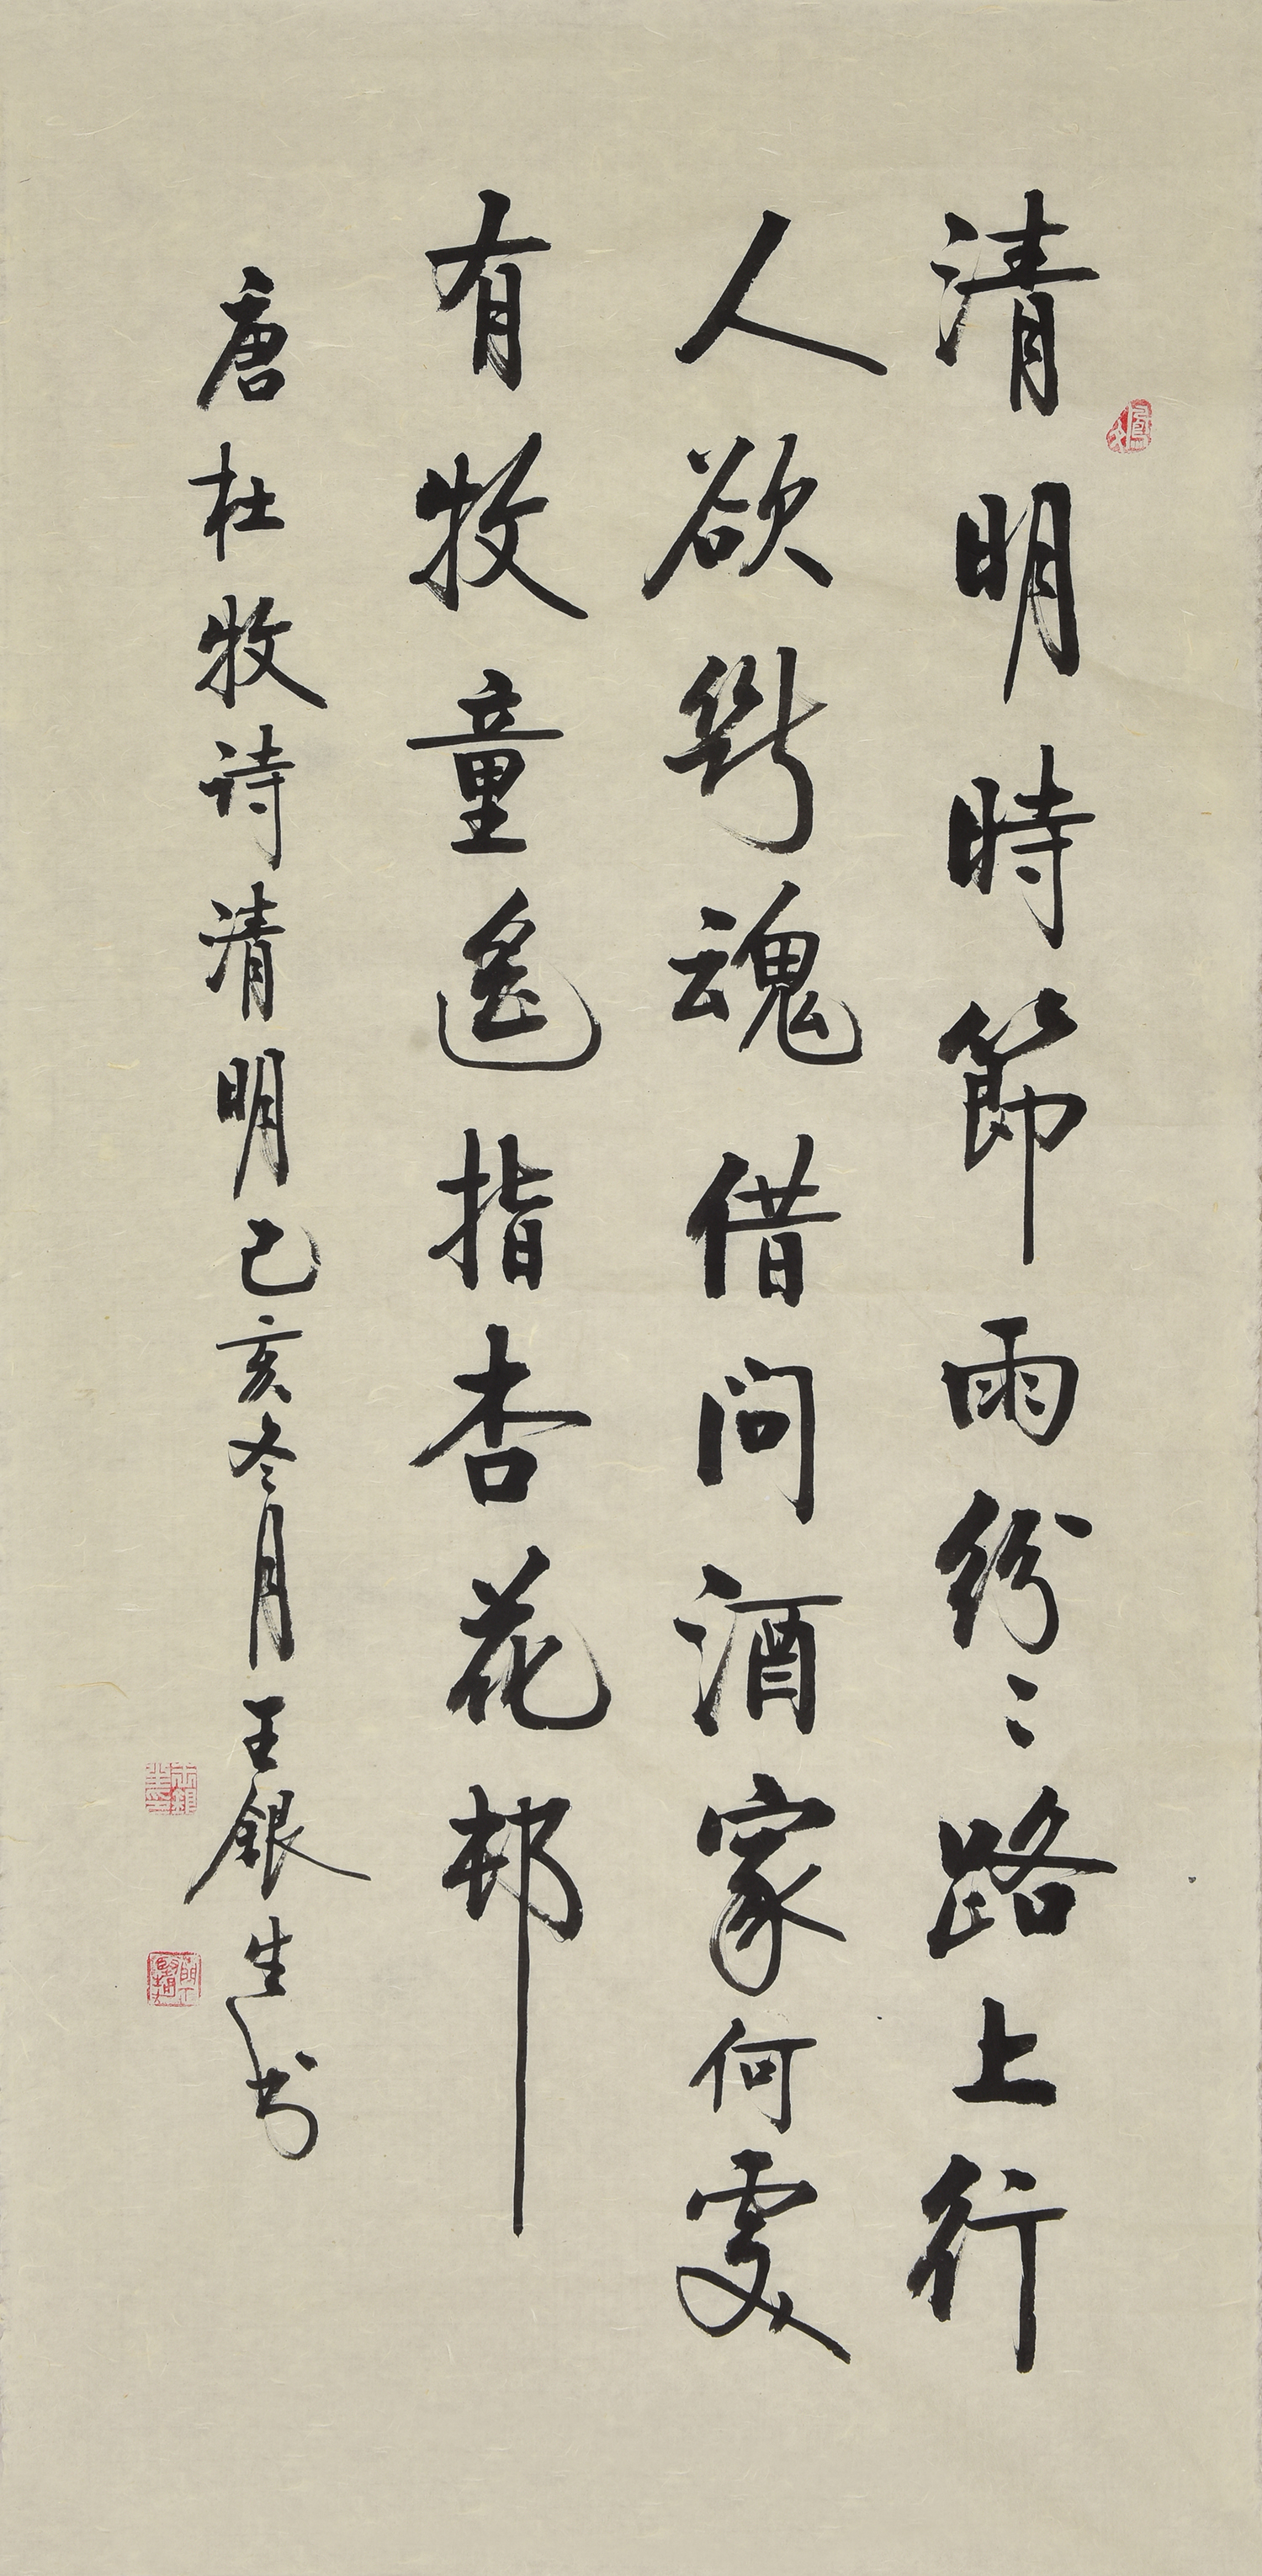 清明時節雨紛〻路上行
人欲斷魂借问酒家何處
有牧童遙指杏花邨
唐杜牧诗清明己亥冬月王銀生书